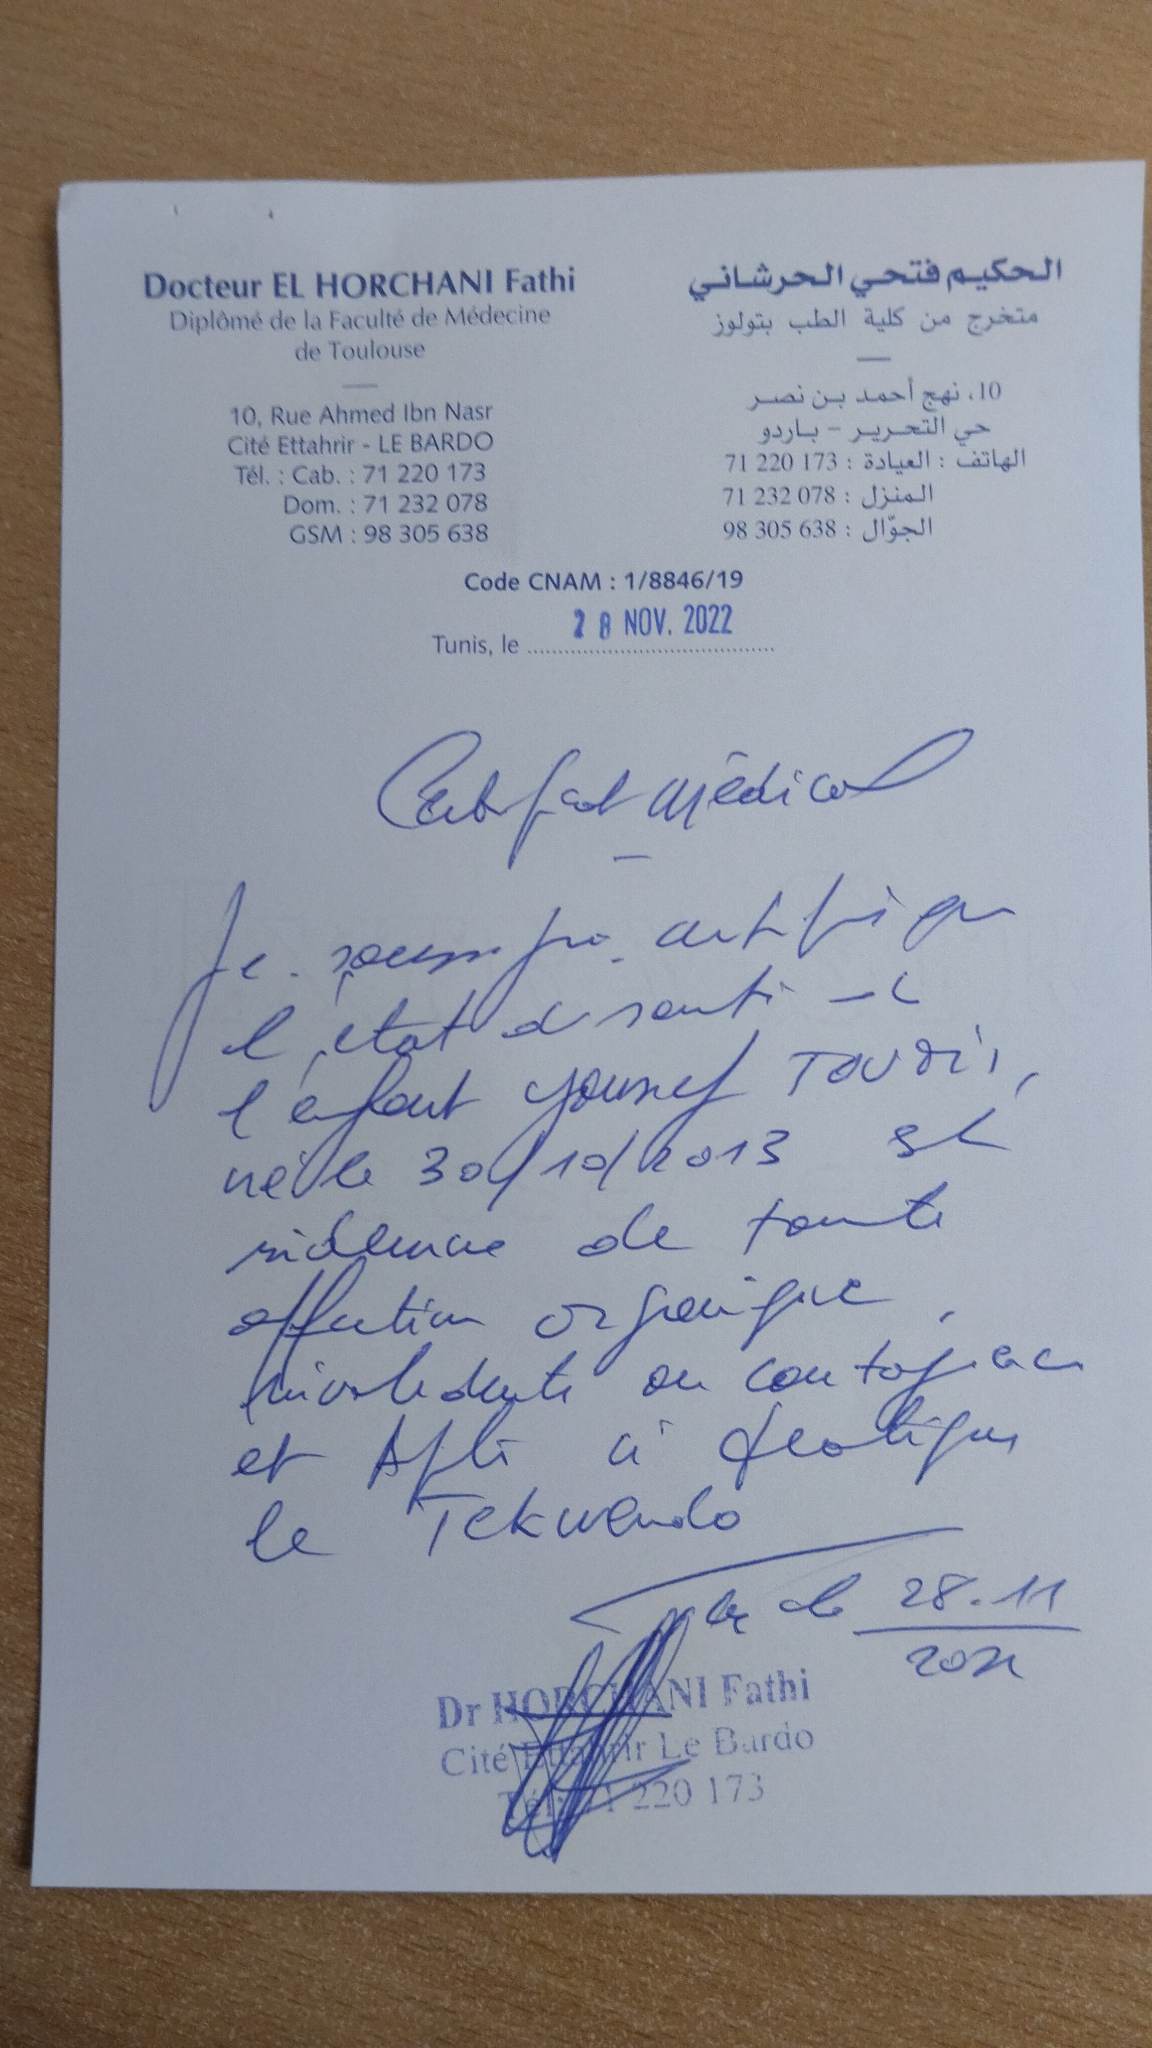 Docteur EL HORCHANI Fathi
Diplômé de la Faculté de Médecine
de Toulouse
10, Rue Ahmed Ibn Nasr
Cité Ettahrir - LE BARDO
Tél. : Cab. : 71 220 173
Dom. : 71 232 078
GSM : 98 305 638
الحكيم فتحي الحرشاني
متخرج من كلية الطب بتولوز
10، نهج أحمد بن نصر
حي التحرير - باردو
الهاتف : العيادة : 173 220 71
المنزل : 078 232 71
الجوّال : 638 305 98
Code CNAM : 1/8846/19
28 NOV. 2022
Tunis, le
Certificat Médical
Je soussigné certifie que
l'état de santé de
l'enfant Youssef
né le 30/10/2013 est
indemne de toute
affection organique,
ou contagieuse
et Apte à pratiquer
le Tekwendo
le 28.11
2022
Dr HORCHANI Fathi
Cité Ettahrir Le Bardo
Tél: 71 220 173